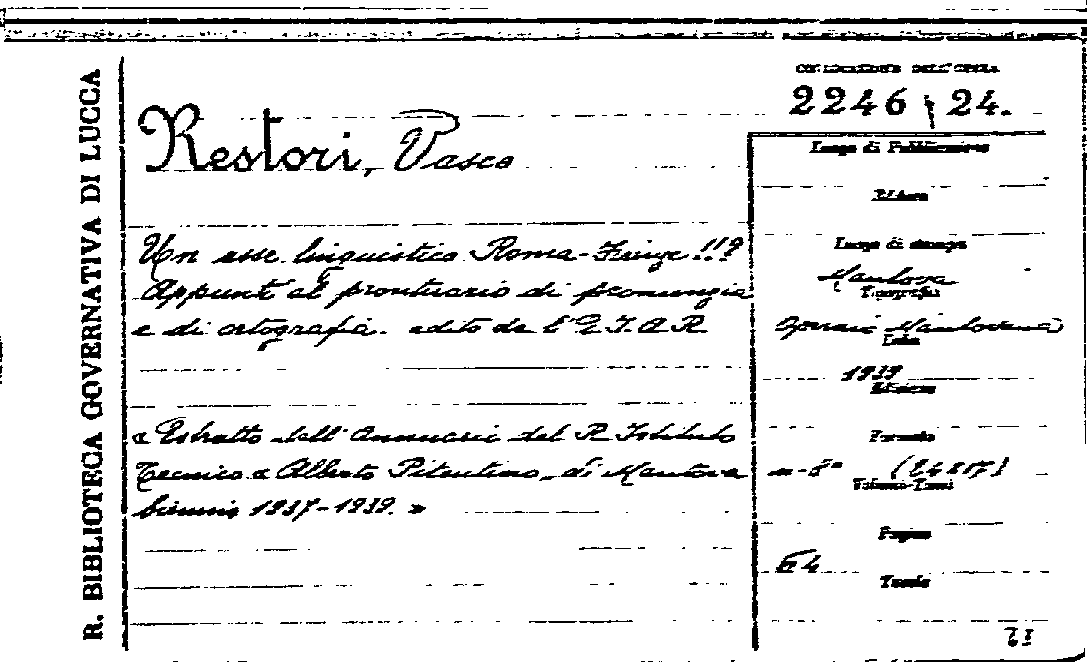 R. BIBLIOTECA GOVERNATIVA DI LUCCA
COLLOCAZIONE DELL'OPERA
2246 24.
Restori, Vasco
Un asse linguistico Roma-Firenze!!?
Appunti al prontuario di pronunzia
e di ortografia edito da l'E.I.A.R
« Estratto dell'Annuario del R. Istituto
Tecnico « Alberto Pitentino » di Mantova
biennio 1937-1939. »
Luogo di Pubblicazione
Editore
Luogo di stampa
Mantova
Tipografia
Operaia Mantovana
Data
1939
Edizione
Formato
in-8° (24x17)
Volumi-Tomi
Pagine
64
Tavole